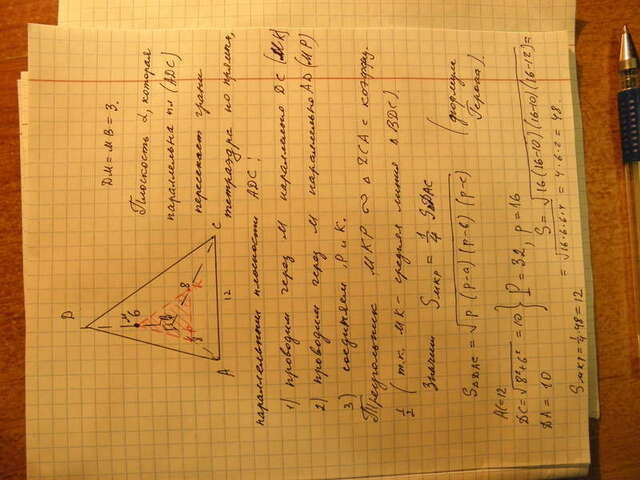 D
M
6
8
K
8
P
A
12
C
DM = MB = 3.
Плоскость α, которая
параллельна пл (ADC)
пересекает грани
тетраэдра по прямым,
параллельным плоскости ADC!
1) проводим через M параллельно DC (MK)
2) проводим через M параллельно AD (MP)
3) соединяем P и K.
Треугольник MKP ∾ Δ DCA с коэффиц.
1/2 (т.к. MK - средняя линия Δ BDC).
Значит S MKP = 1/4 S ΔDAC
S ΔDAC = √p(p-a)(p-b)(p-c) (формула Герона)
AC = 12
DC = √8²+6² = 10 } P = 32, p = 16
DA = 10
S = √16(16-10)(16-10)(16-12) =
= √16·6·6·4 = 4·6·2 = 48.
S MKP = 1/4·48 = 12